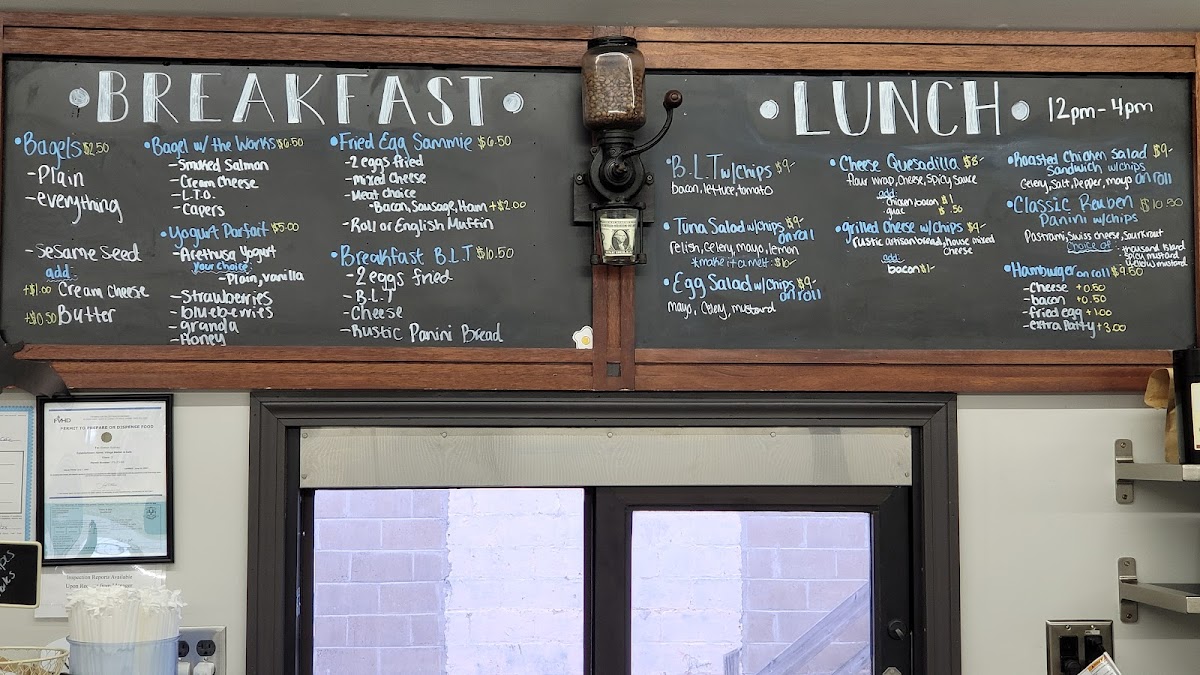 BREAKFAST
• Bagels $2.50
- Plain
- everything
- Sesame Seed
add:
+$1.00 Cream Cheese
+$0.50 Butter
• Bagel w/ the Works $6.50
- Smoked Salmon
- Cream Cheese
- L.T.O.
- Capers
• Yogurt Parfait $5.00
- Arethusa Yogurt
your choice:
- Plain, vanilla
- Strawberries
- blueberries
- granola
- Honey
• Fried Egg Sammie $6.50
- 2 eggs fried
- mixed cheese
- Meat choice
- Bacon, Sausage, Ham + $2.00
- Roll or English Muffin
• Breakfast B.L.T $10.50
- 2 eggs fried
- B.L.T
- Cheese
- Rustic Panini Bread
• LUNCH • 12pm - 4pm
• B.L.T w/chips $9-
Bacon, lettuce, tomato
• Tuna Salad w/chips $9-
on roll
relish, celery, mayo, lemon
*make it a melt: $10-
• Egg Salad w/chips $9-
on roll
mayo, Celery, mustard
• Cheese Quesadilla $8-
flour wrap, Cheese, Spicy Sauce
add:
chicken/bacon $1
guac $.50
• grilled Cheese w/chips $9-
rustic artisan bread, house mixed
cheese
add:
bacon $1-
• Roasted Chicken Salad $9-
Sandwich w/chips
on roll
Celery, Salt, Pepper, mayo
• Classic Reuben $10.50
Panini w/chips
Pastrami, Swiss cheese, Saurkraut
Choice of:
- thousand island
- spicy mustard
- yellow mustard
• Hamburger on roll $9.50
- Cheese +0.50
- bacon +0.50
- fried egg +1.00
- extra Patty +3.00
PERMIT TO PREPARE OR DISPENSE FOOD
Inspection Reports Available
Upon Request from Manager